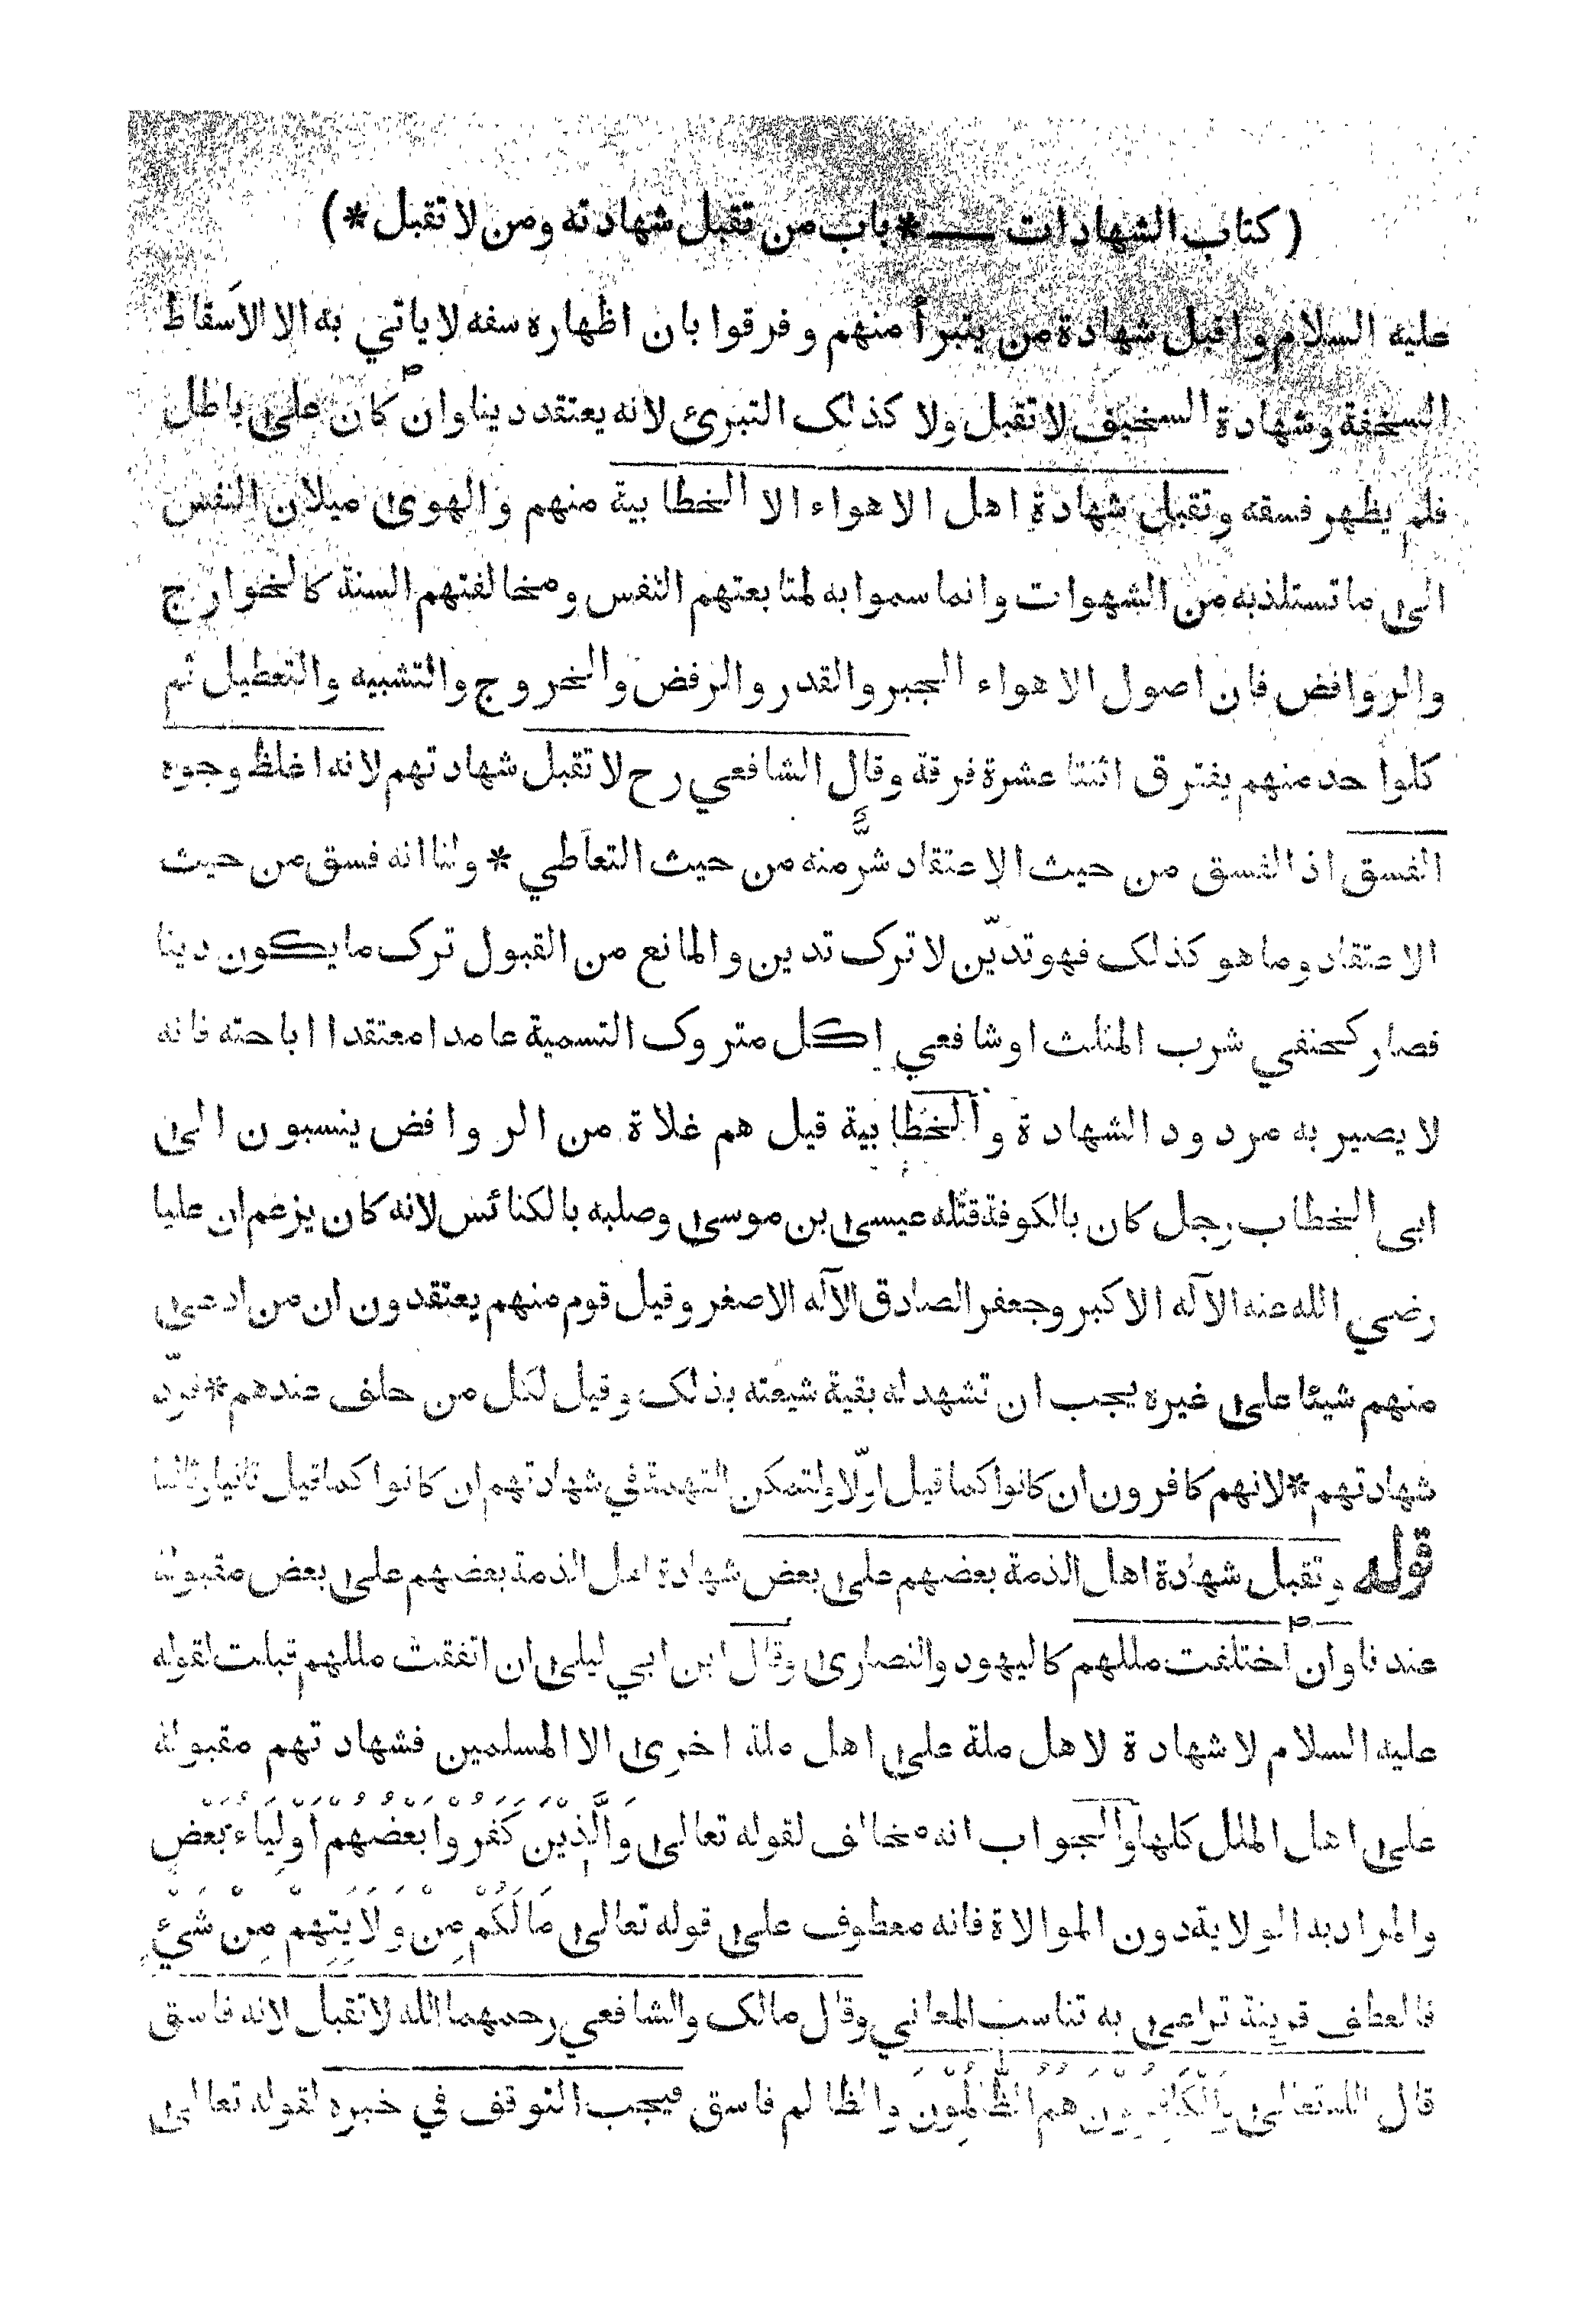 ( كتاب الشهادات ــــ * باب من تقبل شهادته ومن لا تقبل * )
عليه السلام واقبل شهادة من يتبرأ منهم و فرقوا بان اظهاره سفه لا ياتي به الا الاسقاط
السخفة وشهادة السخيف لا تقبل ولا كذلك التبرئ لانه يعتقد دينا وان كان على باطل
فلم يظهر فسقه وتقبل شهادة اهل الاهواء الا الخطابية منهم والهوى ميلان النفس
الى ما تستلذ به من الشهوات وانما سموا به لمتابعتهم النفس ومخالفتهم السنة كالخوارج
والروافض فان اصول الاهواء الجبر والقدر والرفض والخروج والتشبيه والتعطيل ثم
كلواحد منهم يفترق اثنتا عشرة فرقة وقال الشافعي رح لا تقبل شهادتهم لانه اغلظ وجوه
الفسق اذ الفسق من حيث الاعتقاد شرّ منه من حيث التعاطي * ولنا انه فسق من حيث
الاعتقاد وما هو كذلك فهو تديّن لا ترك تدين والمانع من القبول ترك ما يكون دينا
فصار كحنفي شرب المثلث او شافعي اكل متروك التسمية عامدا معتقدا اباحته فانه
لا يصير به مردود الشهادة والخطابية قيل هم غلاة من الروافض ينسبون الى
ابى الخطاب رجل كان بالكوفة قتله عيسى بن موسى وصلبه بالكنائس لانه كان يزعم ان عليا
رضي الله عنه الآله الاكبر وجعفر الصادق الآله الاصغر وقيل قوم منهم يعتقدون ان من ادعى
منهم شيئا على غيره يجب ان تشهد له بقية شيعته بذلك وقيل لكل من حلف عندهم * فردّ
شهادتهم * لانهم كافرون ان كانوا كما قيل اوّلا ولتمكن التهمة في شهادتهم ان كانوا كما قيل ثانيا وثالثا
قوله وتقبل شهادة اهل الذمة بعضهم على بعض شهادة اهل الذمة بعضهم على بعض مقبولة
عندنا وان اختلفت مللهم كاليهود والنصارى وقال ابن ابي ليلى ان اتفقت مللهم قبلت لقوله
عليه السلام لا شهادة لاهل ملة على اهل ملة اخرى الا المسلمين فشهادتهم مقبولة
على اهل الملل كلها والجواب انه مخالف لقوله تعالى وَالَّذِيْنَ كَفَرُوا بَعْضُهُمْ اَوْلِيَاءُ بَعْضٍ
والمراد به الولاية دون الموالاة فانه معطوف على قوله تعالى مَا لَكُمْ مِنْ وَلَايَتِهِمْ مِنْ شَيْءٍ
فالعطف قرينة تراعى به تناسب المعاني وقال مالك والشافعي رحمهما الله لا تقبل لانه فاسق
قال الله تعالى وَالْكَافِرُوْنَ هُمُ الظَّالِمُوْنَ والظالم فاسق فيجب التوقف في خبره لقوله تعالى